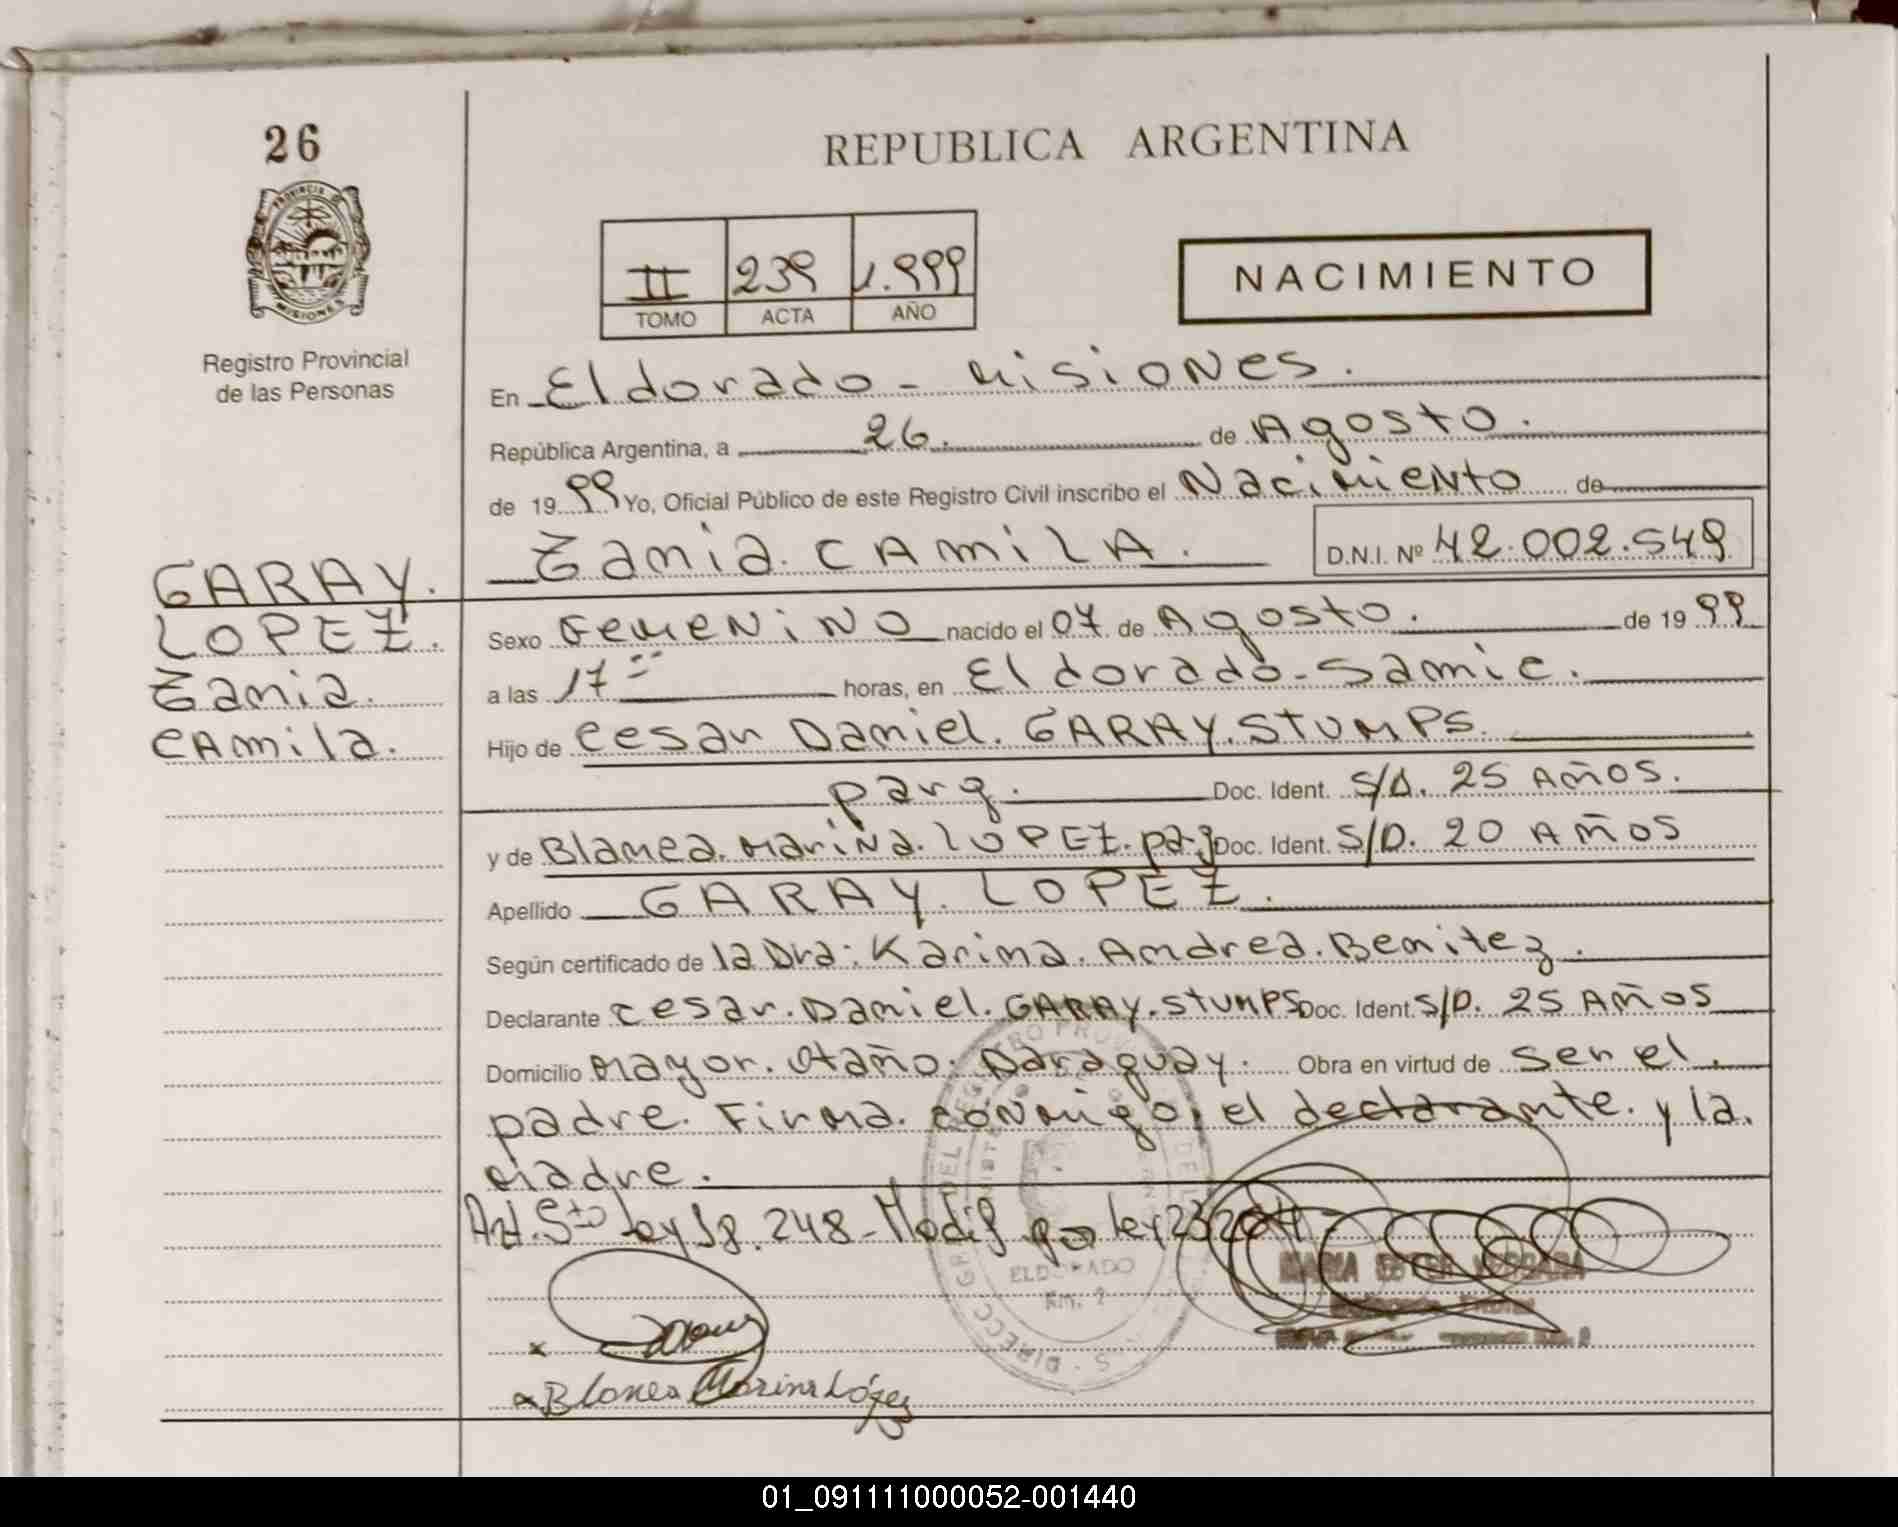 26
REPUBLICA ARGENTINA
PROVINCIA DE
MISIONES
II 239 1.999
TOMO ACTA AÑO
NACIMIENTO
Registro Provincial
de las Personas
En Eldorado - Misiones.
República Argentina, a 26. de Agosto.
de 1999 Yo, Oficial Público de este Registro Civil inscribo el Nacimiento de
Zamia. CAmilA. D.N.I. Nº 42.002.549
GARAY.
LOPEZ.
Zamia.
CAmila.
Sexo Femenino nacido el 07. de Agosto. de 1999
a las 17 horas, en Eldorado - Samic.
Hijo de Cesar Daniel. GARAY. STUMPS.
parg. Doc. Ident. S/D. 25 Años.
y de Blanca. Marina. LOPEZ. Doc. Ident. S/D. 20 Años
Apellido GARAY. LOPEZ.
Según certificado de la Dra: Karina. Andrea. Benitez.
Declarante Cesar. Daniel. GARAY. STUMPS Doc. Ident. S/D. 25 Años
Domicilio Mayor. Otaño. Paraguay. Obra en virtud de Ser el.
padre. Firma. conmigo, el declarante. y la.
Madre.
Art. 5to Ley 18.248 - Modif por ley 23264
ELDORADO
KM. 2
MARIA ESTER VERGARA
Blanca Marina López
01_091111000052-001440